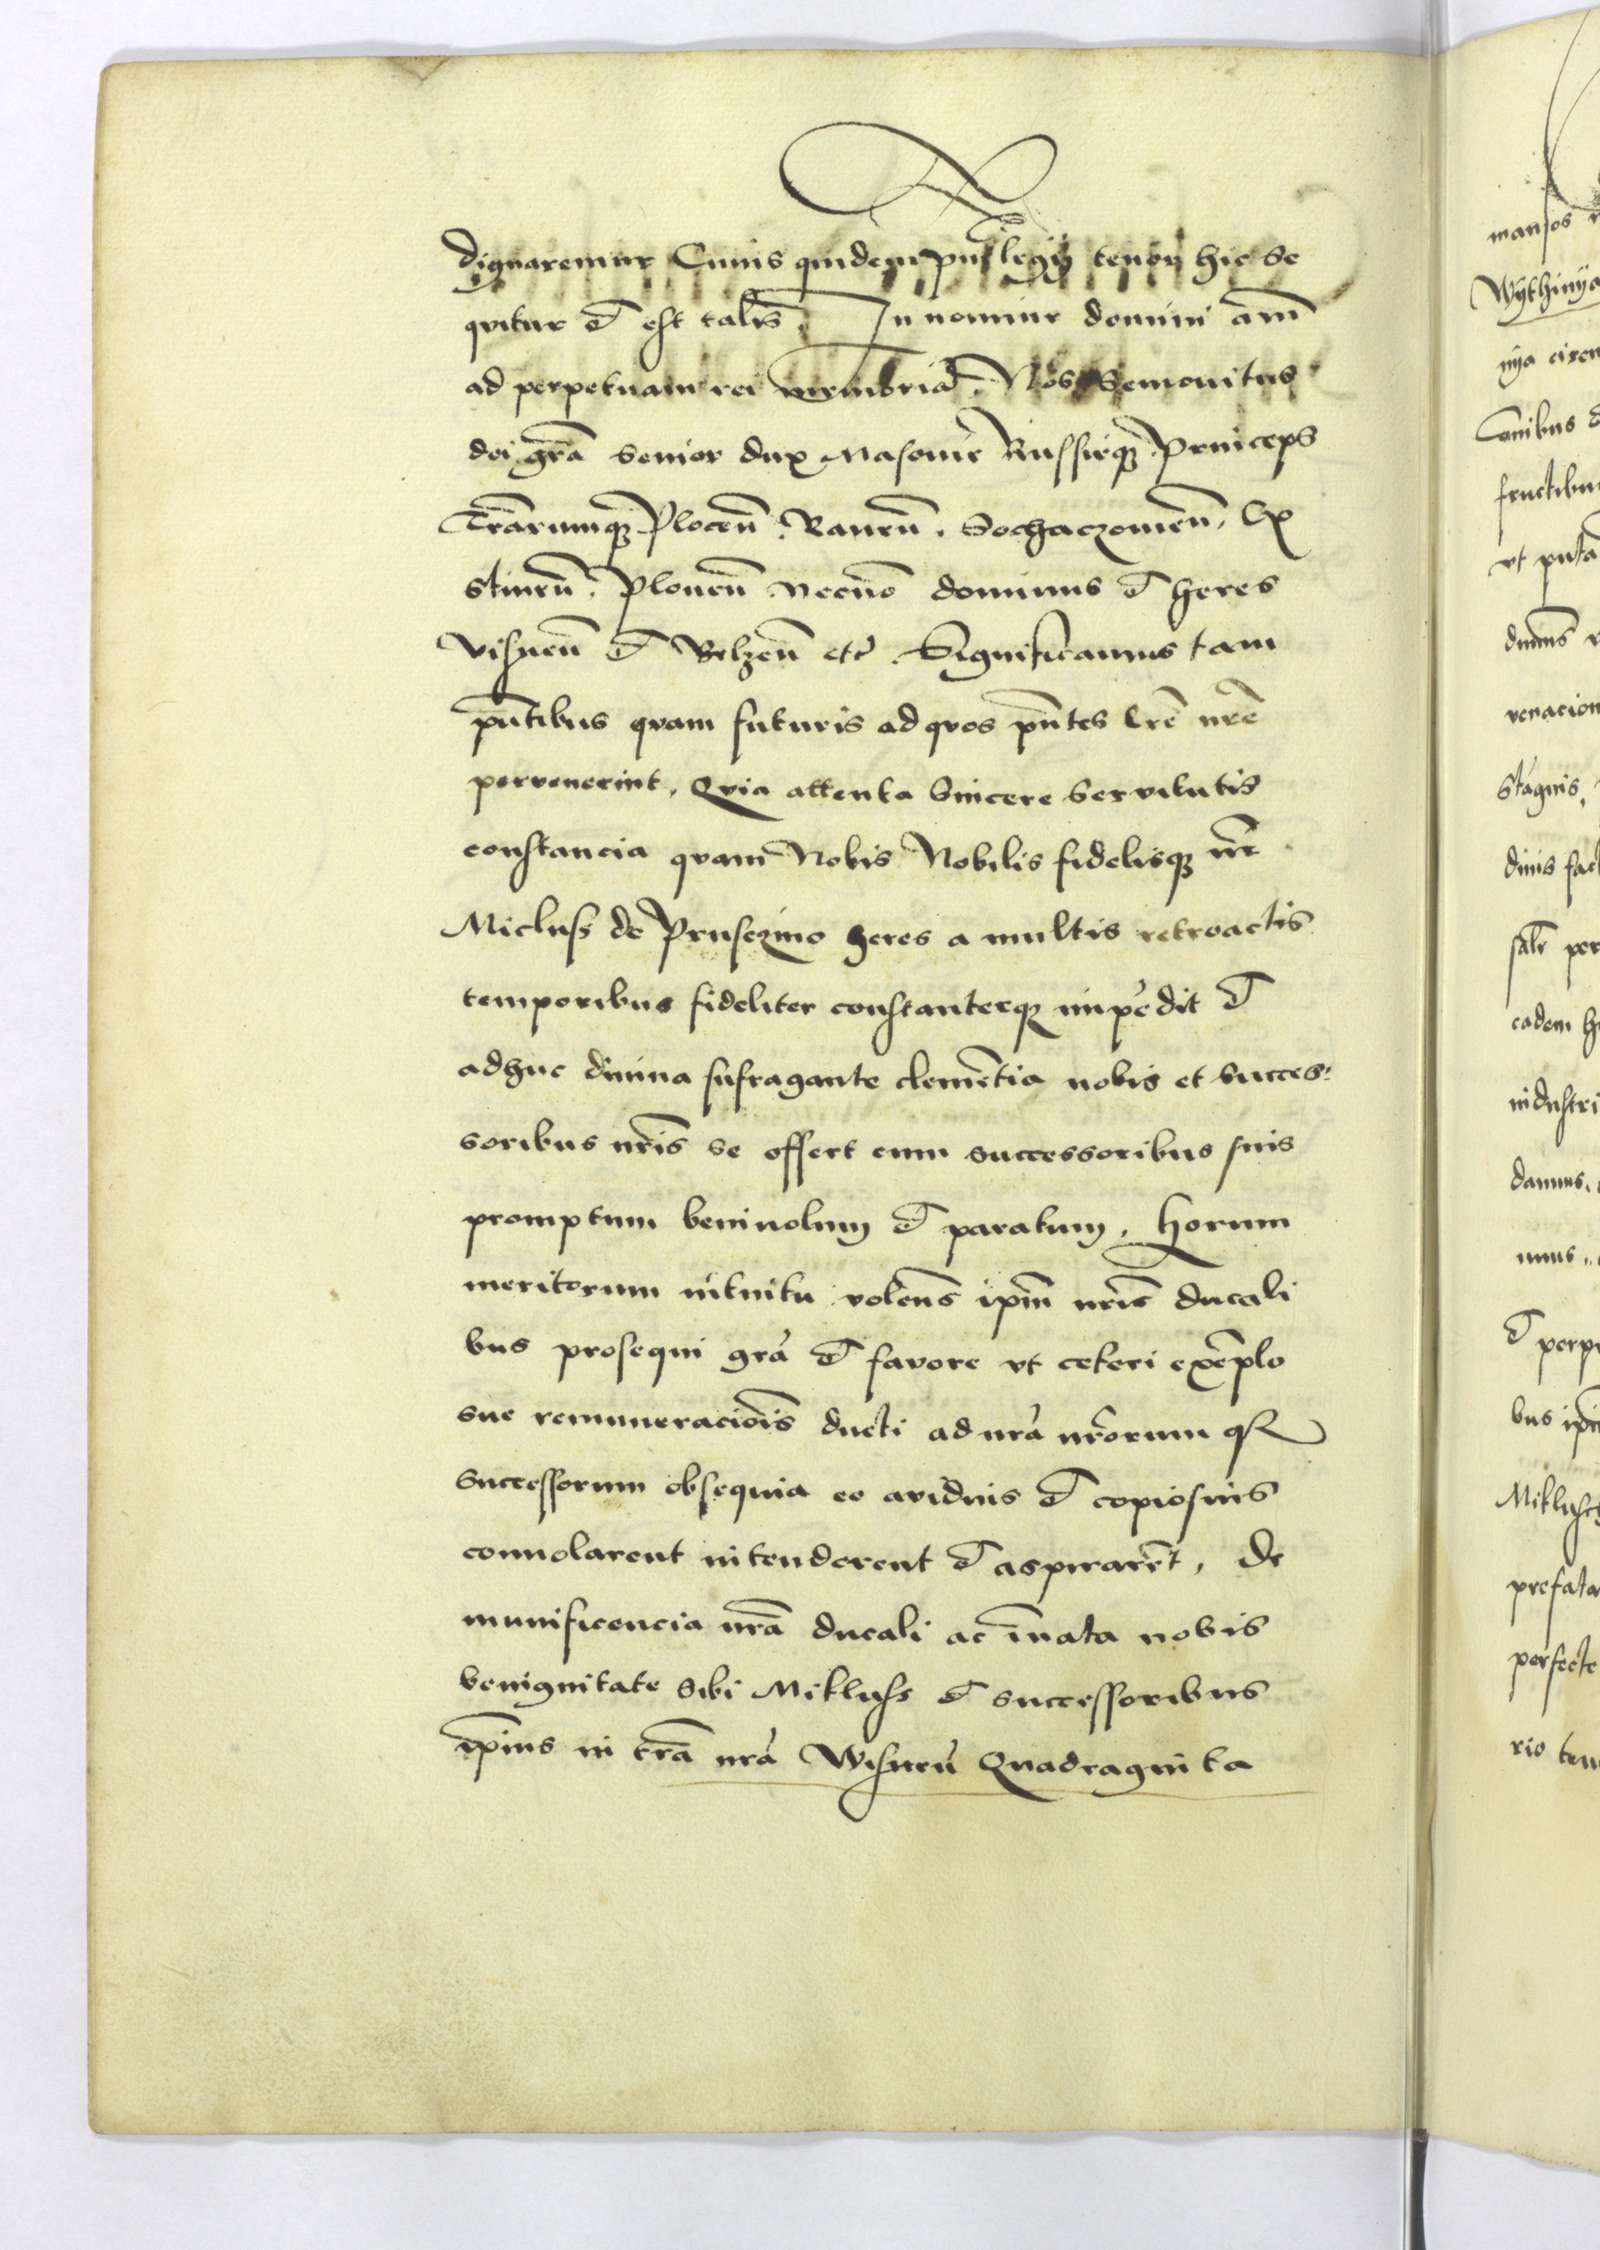 dignaremur Cuius quidem priuilegij tenor hic se
quitur et est talis. In nomine domini am̄
ad perpetuam rei memoriā. Nos Semouitus
dei grā Senior dux Masouie Russieq̨ Princeps
Trārumq̨ Plocen̄. Rauen̄. Sochaczouien̄. Go
stinen̄. Plonen̄ Necno dominus et heres
Visnen̄ et Belzen̄ etc̄. Significamus tam
pn̄tibus quam futuris ad quos pn̄tes lrē nrē
pervenerint, Quia attenta Sincere Servitutis
constancia quam Nobis Nobilis fidelisq̨ nr̄
Micluss de Prusczino heres a multis retroactis
temporibus fideliter constanterq̨ impēdit et
adhuc diuina sufragante clemētia nobis et succes:
soribus nrīs se offert cum successoribus suis
promptum beniuolum et paratum, Horum
meritorum intuitu volens ipm̄ nrīs ducali
bus prosequi grā et favore vt ceteri exēplo
sue remuneraciōis ducti ad nrā nrōrum q̨
Successorum obsequia eo avidius et copiosius
conuolarent intenderent et aspirarēt, De
munificencia nrā ducali ac īnata nobis
benignitate Sibi Mikluss et successoribus
ip̄ius in trā nrā Wisnen̄ Quadraginta
mansos
Wythinya
nya
fructibus
vt puta
Stagnis,
dinis
per
eadem
industri
damus,
prefata
perfecte
rio